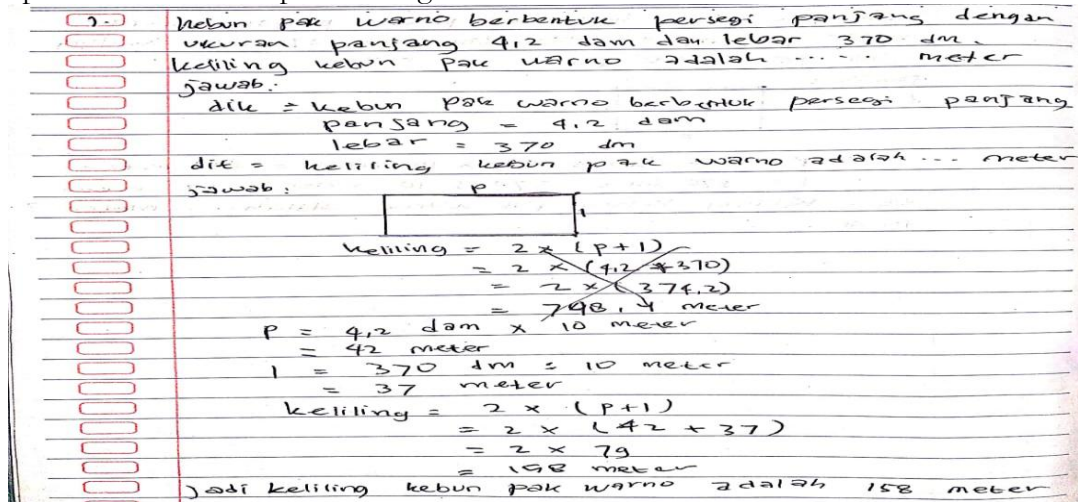 1.) Kebun pak warno berbentuk persegi panjang dengan
ukuran panjang 4,2 dam dan lebar 370 dm.
Keliling kebun Pak warno adalah ..... meter
jawab.
dik = kebun pak warno berbentuk persegi panjang
panjang = 4,2 dam
lebar = 370 dm
dit = keliling kebun pak warno adalah ... meter
jawab :
P
l
keliling = 2 x (p + l)
= 2 x (4,2 + 370)
= 2 x (374,2)
= 748,4 meter
P = 4,2 dam x 10 meter
= 42 meter
l = 370 dm : 10 meter
= 37 meter
keliling = 2 x (p + l)
= 2 x (42 + 37)
= 2 x 79
= 158 meter
Jadi keliling kebun pak warno adalah 158 meter